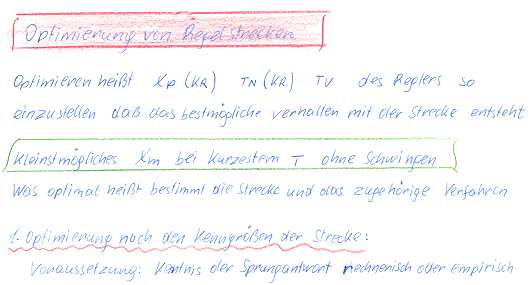 Optimierung von Regelstrecken
Optimieren heißt Xp (KR) TN (KR) TV des Reglers so
einzustellen daß das bestmögliche verhalten mit der Strecke entsteht
Kleinstmögliches Xm bei Kürzestem T ohne Schwingen
Was optimal heißt bestimmt die Strecke und das zugehörige Verfahren
1. Optimierung nach den Kenngrößen der Strecke:
Voraussetzung: Kentnis der Sprungantwort rechnerisch oder empirisch